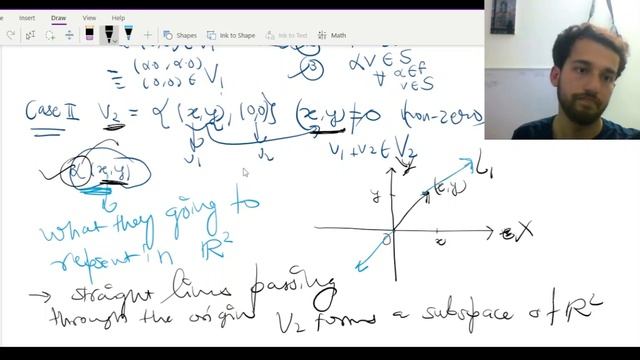 Insert Draw View
Shapes Ink to Shape Ink to Text Math
(0,0) ∈ V₁
≡ (α·0, α·0)
(0,0) ∈ V₁
③ αv ∈ S
∀ α∈F
v∈S
Case II V₂ = α{(x,y), (0,0)} (x,y) ≠ 0 (non-zero
v₁ v₂ v₁+v₂ ∈ V₂
α(x,y)
y (x,y) L₁
0 x X
What they going to
repsent in ℝ²
→ straight lines passing
through the origin V₂ forms a subspace of ℝ²